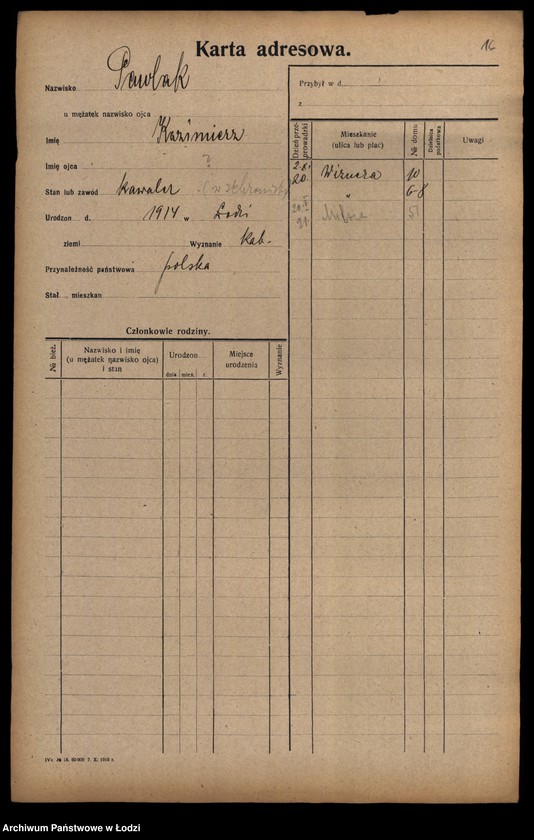 Karta adresowa.
16
Nazwisko Pawlak
u mężatek nazwisko ojca
Imię Kazimierz
Imię ojca ?
Stan lub zawód kawaler
Urodzon d. 1914 w Łodzi
ziemi Wyznanie kat.
Przynależność państwowa polska
Stał mieszkan
Członkowie rodziny.
№ bież.
Nazwisko i imię
(u mężatek nazwisko ojca)
i stan
Urodzon
dnia mies. r.
Miejsce
urodzenia
Wyznanie
Przybył w d.
z
Dzień prze-
prowadzki
Mieszkanie
(ulica lub plac)
№ domu
Dzielnica
podatkowa
Uwagi
20. Wiznera 10
" 6-8
21. 51
Archiwum Państwowe w Łodzi